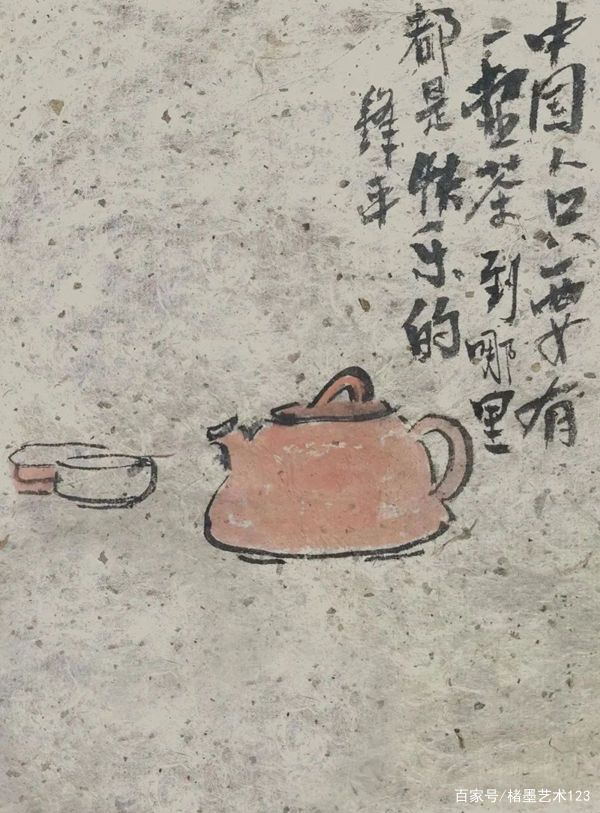 中国人只要有
一壶茶到哪里
都是快乐的
锋平
百家号/楮墨艺术123